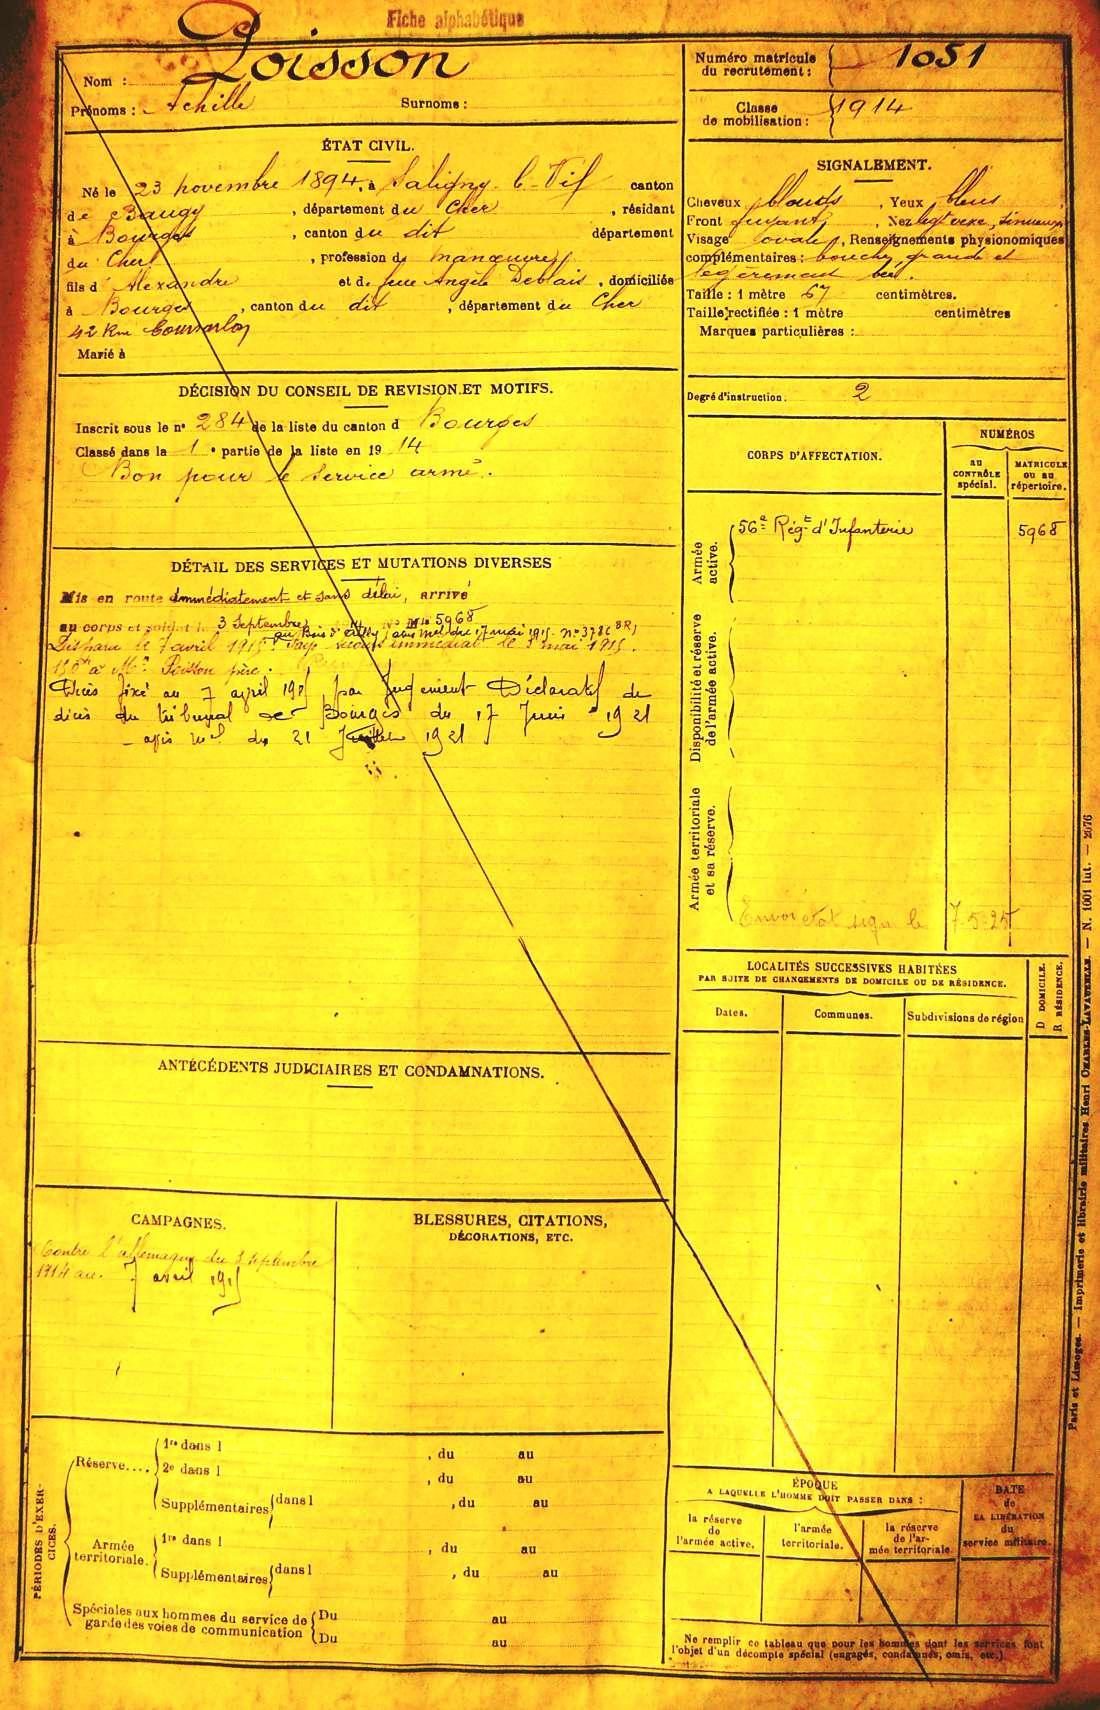 Fiche alphabétique
Nom : Poisson
Prénoms : Achille Surnoms :
Numéro matricule du recrutement : 1051
Classe de mobilisation : 1914
ÉTAT CIVIL.
Né le 23 novembre 1894, à Saligny-le-Vif canton
de Baugy, département du Cher, résidant
à Bourges, canton du dit département
du Cher, profession de manœuvre
fils d'Alexandre et de feue Angèle Deblais, domiciliés
à Bourges, canton du dit, département du Cher
42 Rue
Marié à
SIGNALEMENT.
Cheveux blonds, Yeux bleus
Front fuyant, Nez legt vexe, sinueux
Visage ovale, Renseignements physionomiques
complémentaires : bouche grande et
légèrement
Taille : 1 mètre 67 centimètres.
Taille rectifiée : 1 mètre centimètres
Marques particulières :
Degré d'instruction. 2
DÉCISION DU CONSEIL DE REVISION ET MOTIFS.
Inscrit sous le n° 284 de la liste du canton d Bourges
Classé dans la 1e partie de la liste en 1914
Bon pour le service armé.
CORPS D'AFFECTATION.
NUMÉROS
AU CONTRÔLE spécial.
MATRICULE OU AU répertoire.
Armée active.
56e Régt d'Infanterie 5968
Disponibilité et réserve de l'armée active.
Armée territoriale et sa réserve.
Envoi état sign le 7-5-25
DÉTAIL DES SERVICES ET MUTATIONS DIVERSES
Mis en route immédiatement et sans délai, arrivé
au corps et soldat le 3 Septembre 1914 No Mle 5968
au Bois d'Ailly, avis mel du 17 mai 1915. no 3786 BR)
Disparu le 7 avril 1915. Payé secours immédiat le 3 mai 1915.
150f à Mr Poisson père.
Décès fixé au 7 avril 1915 par Jugement Déclaratif de
décès du tribunal de Bourges du 17 Juin 1921
avis mel du 21 Juillet 1921
LOCALITÉS SUCCESSIVES HABITÉES
PAR SUITE DE CHANGEMENTS DE DOMICILE OU DE RÉSIDENCE.
Dates. Communes. Subdivisions de région
D DOMICILE.
R RÉSIDENCE.
ANTÉCÉDENTS JUDICIAIRES ET CONDAMNATIONS.
CAMPAGNES.
Contre l'allemagne du 3 septembre
1914 au 7 avril 1915
BLESSURES, CITATIONS,
DÉCORATIONS, ETC.
PÉRIODES D'EXERCICES.
Réserve....
1re dans l , du au
2e dans l , du au
Supplémentaires dans l , du au
Armée territoriale.
1re dans l , du au
Supplémentaires dans l , du au
Spéciales aux hommes du service de garde des voies de communication
Du au
Du au
ÉPOQUE
A LAQUELLE L'HOMME DOIT PASSER DANS :
la réserve de l'armée active.
l'armée territoriale.
la réserve de l'armée territoriale.
DATE de LA LIBÉRATION du service militaire.
Ne remplir ce tableau que pour les hommes dont les services font
l'objet d'un décompte spécial (engagés, condamnés, omis, etc.)
Paris et Limoges. — Imprimerie et librairie militaires Henri CHARLES-LAVAUZELLE. — N. 1001 lut. — 2676